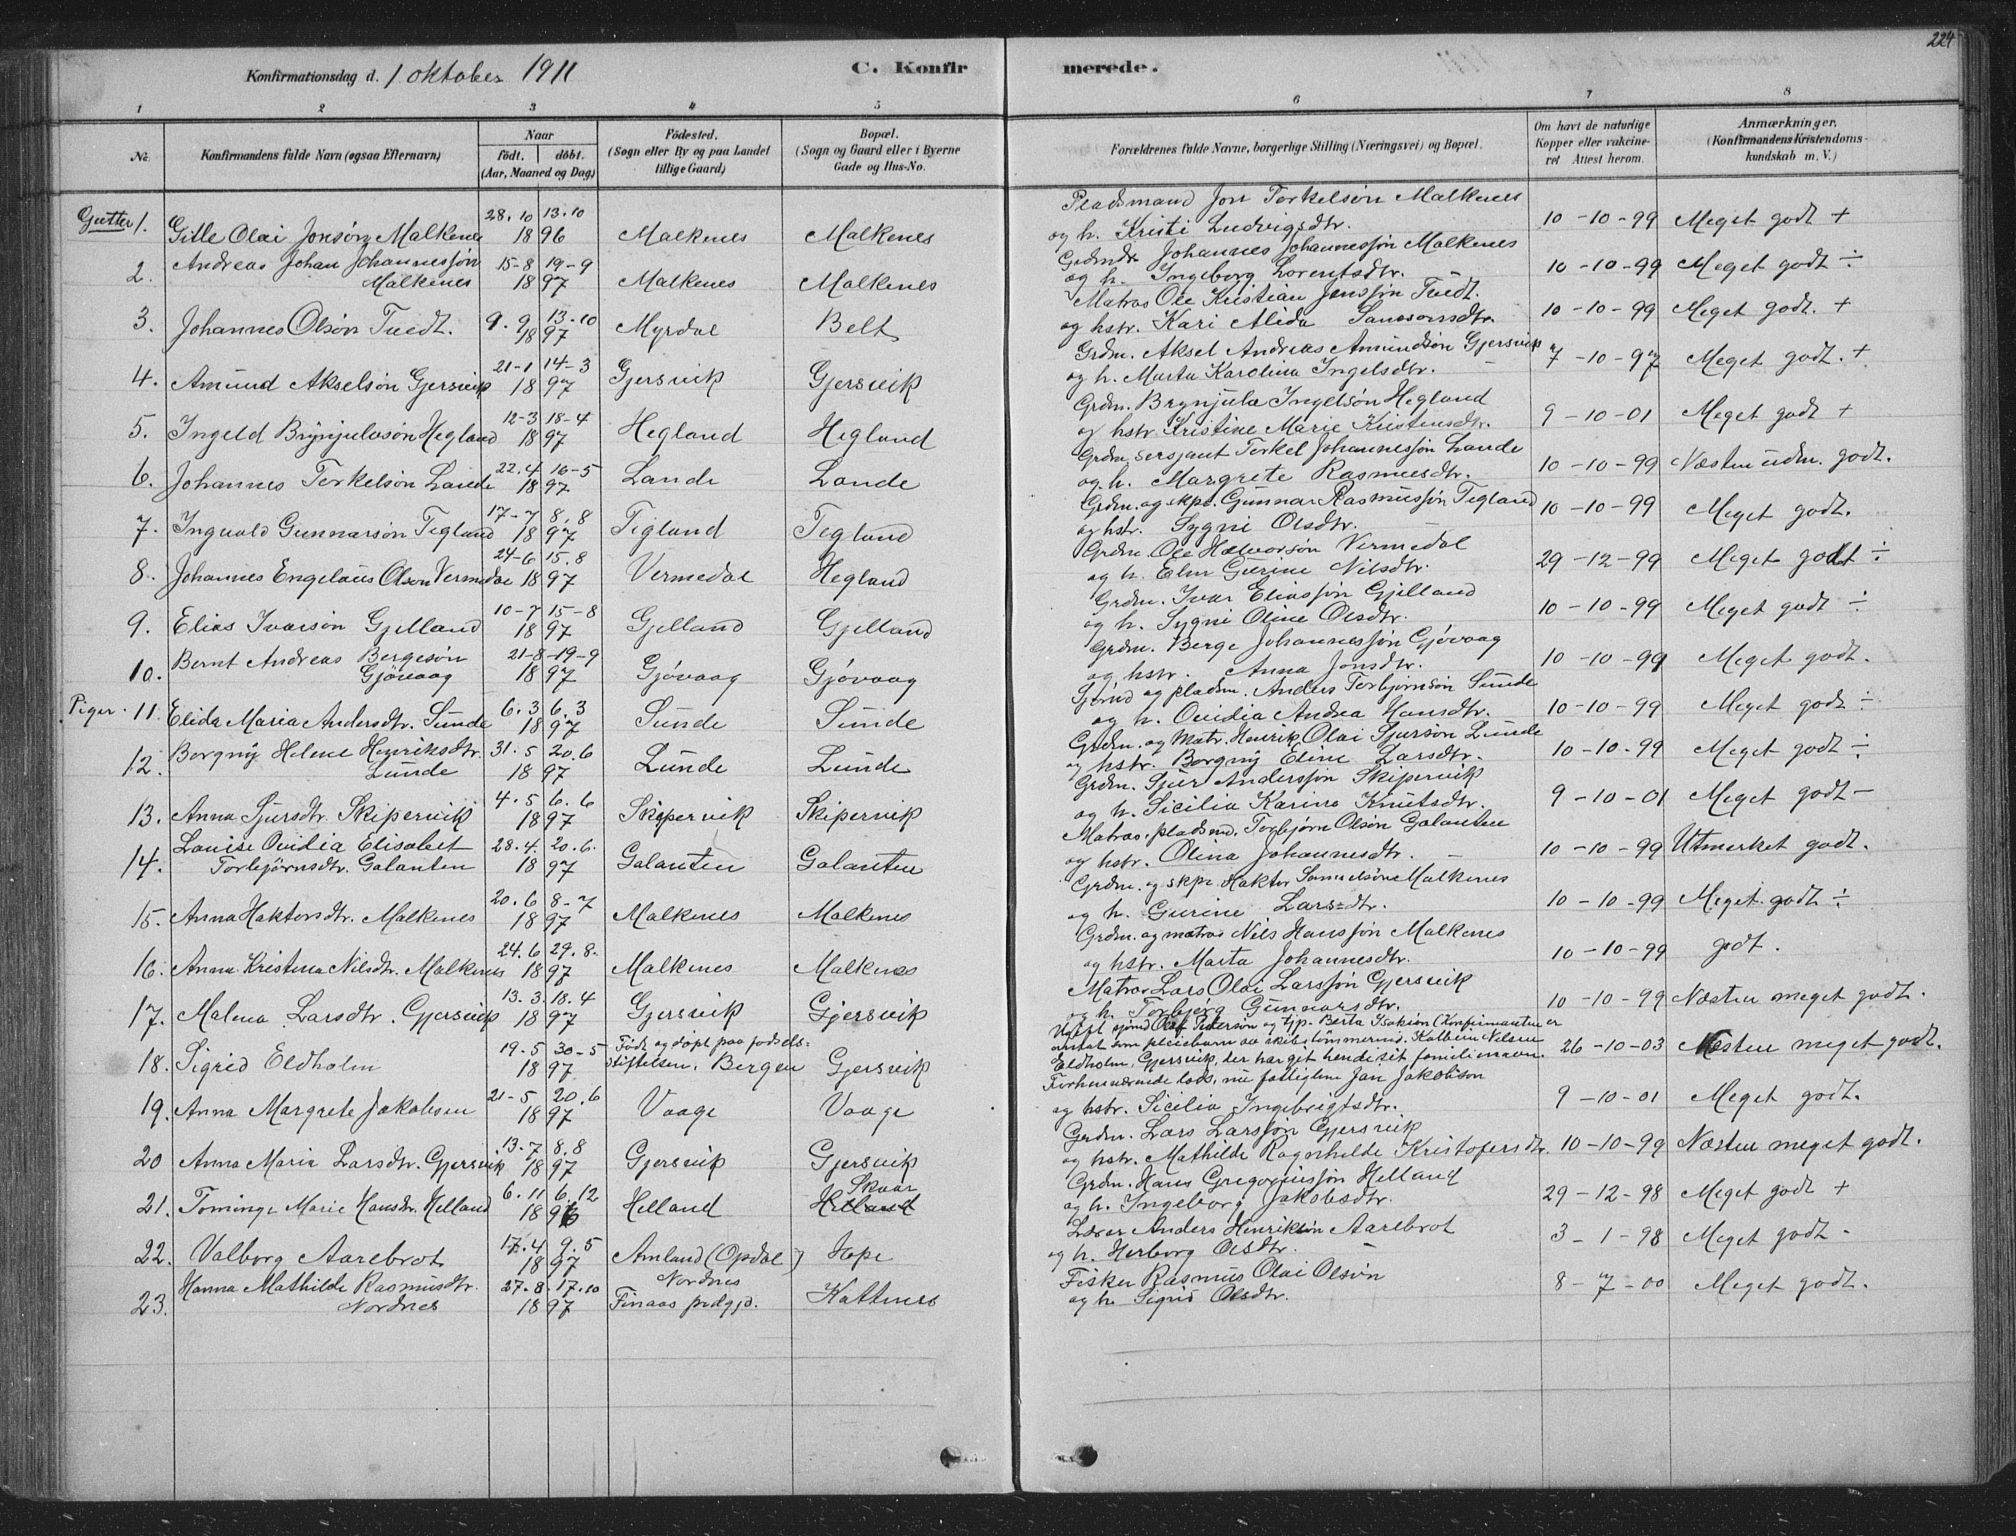 224
Konfirmationsdag d. 1 oktober 1911 C. Konfirmerede.
1 2 3 4 5 6 7 8
No. Konfirmandens fulde Navn (ogsaa Efternavn) Naar født. døbt. (Aar, Maaned og Dag) Fødested. (Sogn eller By og paa Landet tillige Gaard) Bopæl. (Sogn og Gaard eller i Byerne Gade og Hus-No. Forældrenes fulde Navne, borgerlige Stilling (Næringsvei) og Bopæl. Om havt de naturlige Kopper eller vakcineret Attest herom. Anmærkninger. (Konfirmandens Kristendomskundskab m. V.)
Gutter 1. Gitle Olai Jonsøn Malkenes 28.10 13.10 1896 Malkenes Malkenes Pladsmand Jon Torkelsøn Malkenes og h. Kristi Ludvigsdtr. 10-10-99 Meget godt +
2. Andreas Johan Johannessøn Malkenes 15-8 19-9 1897 Malkenes Malkenes Grdmdr. Johannes Johannessøn Malkenes og h. Ingeborg Lorentsdtr. 10-10-99 Meget godt ÷
3. Johannes Olsøn Tvedt. 9.9 13.10 1897 Myrdal Belt Matros Ole Kristian Jenssøn Tvedt. og hstr. Kari Alida Samsonsdtr. 10-10-99 Meget godt. +
4. Amund Akselsøn Gjersvik 21-1 14-3 1897 Gjersvik Gjersvik Grdm. Aksel Andreas Amundsøn Gjersvik og h. Marta Karolina Ingelsdtr. 7-10-97 Meget godt. +
5. Ingeld Brynjulvsøn Hegland 12-3 18-4 1897 Hegland Hegland Grdm. Brynjulv Ingelsøn Hegland og hstr. Kristine Marie Kristensdtr. 9-10-01 Meget godt +
6. Johannes Torkelsøn Lande 22.4 16-5 1897 Lande Lande Grdm. sersjant Torkel Johannessøn Lande og h. Margrete Rasmusdtr. 10-10-99 Næsten udm. godt.
7. Ingvald Gunnarsøn Tegland 17-7 8.8 1897 Tegland Tegland Grdm. og skpr. Gunnar Rasmussøn Tegland og hstr. Sygni Olsdtr. 10-10-99 Meget godt.
8. Johannes Engelaus Olson Vermedal 24-6 15.8 1897 Vermedal Hegland Grdm. Ole Halvorsøn Vermedal og h. Elen Gurine Nilsdtr. 29-12-99 Meget godt ÷
9. Elias Ivarsøn Gjelland 10-7 15-8 1897 Gjelland Gjelland Grdm. Ivar Eliassøn Gjelland og h. Sygni Oline Olsdtr. 10-10-99 Meget godt ÷
10. Bernt Andreas Bergesøn Gjøvaag 21-8-19-9 1897 Gjøvaag Gjøvaag Grdm. Berge Johannessøn Gjøvaag og hstr. Anna Jonsdtr. 10-10-99 Meget godt.
Piger. 11. Elida Maria Andersdtr. Sunde 6.3 6.3 1897 Sunde Sunde Sjømd og pladsm. Anders Torbjørnsøn Sunde og h. Ovidia Andrea Hansdtr. 10-10-99 Meget godt ÷
12. Borgny Helene Henriksdtr. Lunde 31.5 20.6 1897 Lunde Lunde Grdm. og Matr. Henrik Olai Sjursøn Lunde og hstr. Borgny Eline Larsdtr. 10-10-99 Meget godt ÷
13. Anna Sjursdtr. Skipervik 4.5 6.6 1897 Skipervik Skipervik Grdm. Sjur Anderssøn Skipervik og h. Sicilia Karina Knutsdtr. 9-10-01 Meget godt -
14. Lovise Ovidia Elisabet Torbjørnsdtr. Galanten 28.4. 20.6. 1897 Galanten Galanten Matros, pladsmd. Torbjørn Olsøn Galanten og hstr. Olina Johannesdtr. 10-10-99 Utmerket godt.
15. Anna Haktorsdtr. Malkenes 20.6 8-7 1897 Malkenes Malkenes Grdm. og skpr. Haktor Samuelsøn Malkenes og h. Gurine Larsdtr. 10-10-99 Meget godt ÷
16. Anna Kristina Nilsdtr. Malkenes 24.6 29.8. 1897 Malkenes Malkenes Grdm. og matros Nils Hanssøn Malkenes og hstr. Marta Johannesdtr. 10-10-99 godt.
17. Malena Larsdtr. Gjersvik 13.3. 18.4 1897 Gjersvik Gjersvik Matros Lars Olai Larssøn Gjersvik og h. Torbjørg Gunnarsdtr. 10-10-99 Næsten meget godt.
18. Sigrid Eldholm 19.5 30-5 1897 Født og døpt paa fødselsstiftelsen, Bergen Gjersvik sjømd Olaf Pedersøn og tjp. Berta Isaksøn (Konfirmanten er antat som pleiebarn av skibstømmermd. Kolbein Nilsen Eldholm, Gjersvik, der har get hende sit familienavn. 26-10-03 Næsten meget godt.
19. Anna Margrete Jakobsen 21-5 20.6 1897 Vaage Vaage Forhenværende lods, nu fattiglem Jan Jakobsson og hstr. Sicilia Ingebrigtsdtr. 9-10-01 Meget godt.
20 Anna Maria Larsdtr. Gjersvik 13.7 8.8 1897 Gjersvik Gjersvik Grdm. Lars Larssøn Gjersvik og hstr. Mathilde Ragnhilde Kristofersdtr. 10-10-99 Næsten meget godt.
21. Tominge Marie Hansdtr. Helland 6.11 6.12 1896 Helland Skaar Helland Grdm. Hans Gregoriussøn Helland og h. Ingeborg Jakobsdtr. 29-12-98 Meget godt +
22. Valborg Aarebrot 17.4 9.5 1897 Amland (Opdal) Hope Lærer Anders Henriksøn Aarebrot og h. Herborg Olsdtr. 3-1-98 Meget godt -
23. Hanna Mathilde Rasmusdtr. Nordnes 27.8. 17.10 1897 Nordnes Finaas prdgjd. Kattnes Fisker Rasmus Olai Olsøn og h. Sigrid Olsdtr. 8-7-00 Meget godt.